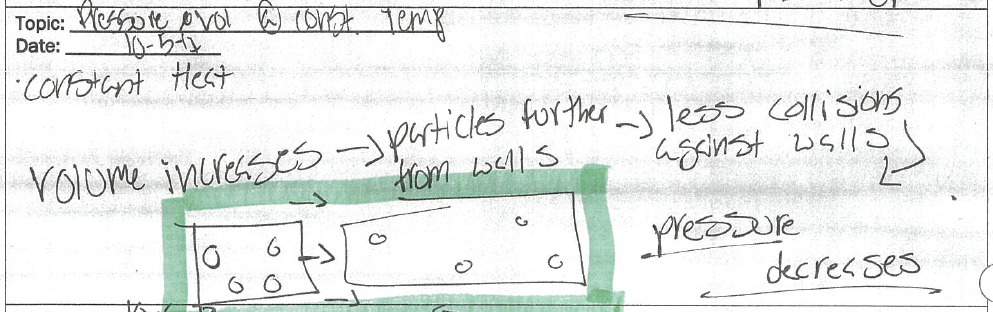 Topic: Pressure & vol @ const. temp
Date: 10-5-17
· constant Heat
volume increases → particles further from walls → less collisions against walls
pressure
decreases